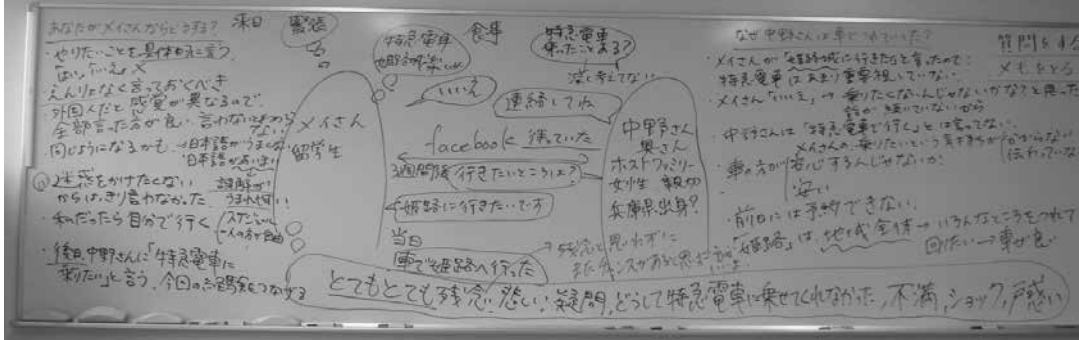 あなたがメイさんならどうする?
・やりたいことを具体的に言う
はい、いいえ ×
えんりょなく言っておくべき
外国人だと感覚が異なるので、
全部言った方が良い 言わないと
ない
同じようになるかも →日本語がうまくない
日本語があいまい
迷惑をかけたくない
からはっきり言わなかった
誤解が
うまれやすい
・私だったら自分で行く
スケジュール
一人の方が自由
・後日、中野さんに「特急電車に
乗りたい」と言う、今回の
来日
緊張
特急電車
食事
特急電車
乗ったことある?
深く考えてない
いいえ
連絡してね
メイさん
留学生
facebookに 待っていた
3週間後 行きたいところは?
姫路に行きたいです
当日
車で姫路へ行った
中野さん
奥さん
ホストファミリー
女性 親切
兵庫県出身?
残念と思わずに
またチャンスがあると思えば
とてもとても残念、悲しい、疑問、どうして特急電車に乗せてくれなかった、不満、ショック、戸惑い
なぜ中野さんは車でつれていった?
・メイさんが「姫路城に行きたい」と言ったので
特急電車はあまり重要視していない
・メイさん「いいえ」→ 乗りたくないんじゃないかなと思った
話が続いていないから
・中野さんは「特急電車で行く」とは言ってない。
メイさんの乗りたいという気持ちが
わからない
伝わっていない
・車の方が安心するんじゃないか?
安い
・前日には予約できない
「姫路」は、地域全体→いろんなところをつれて
回りたい→車が良い
質問をする
メモをとる